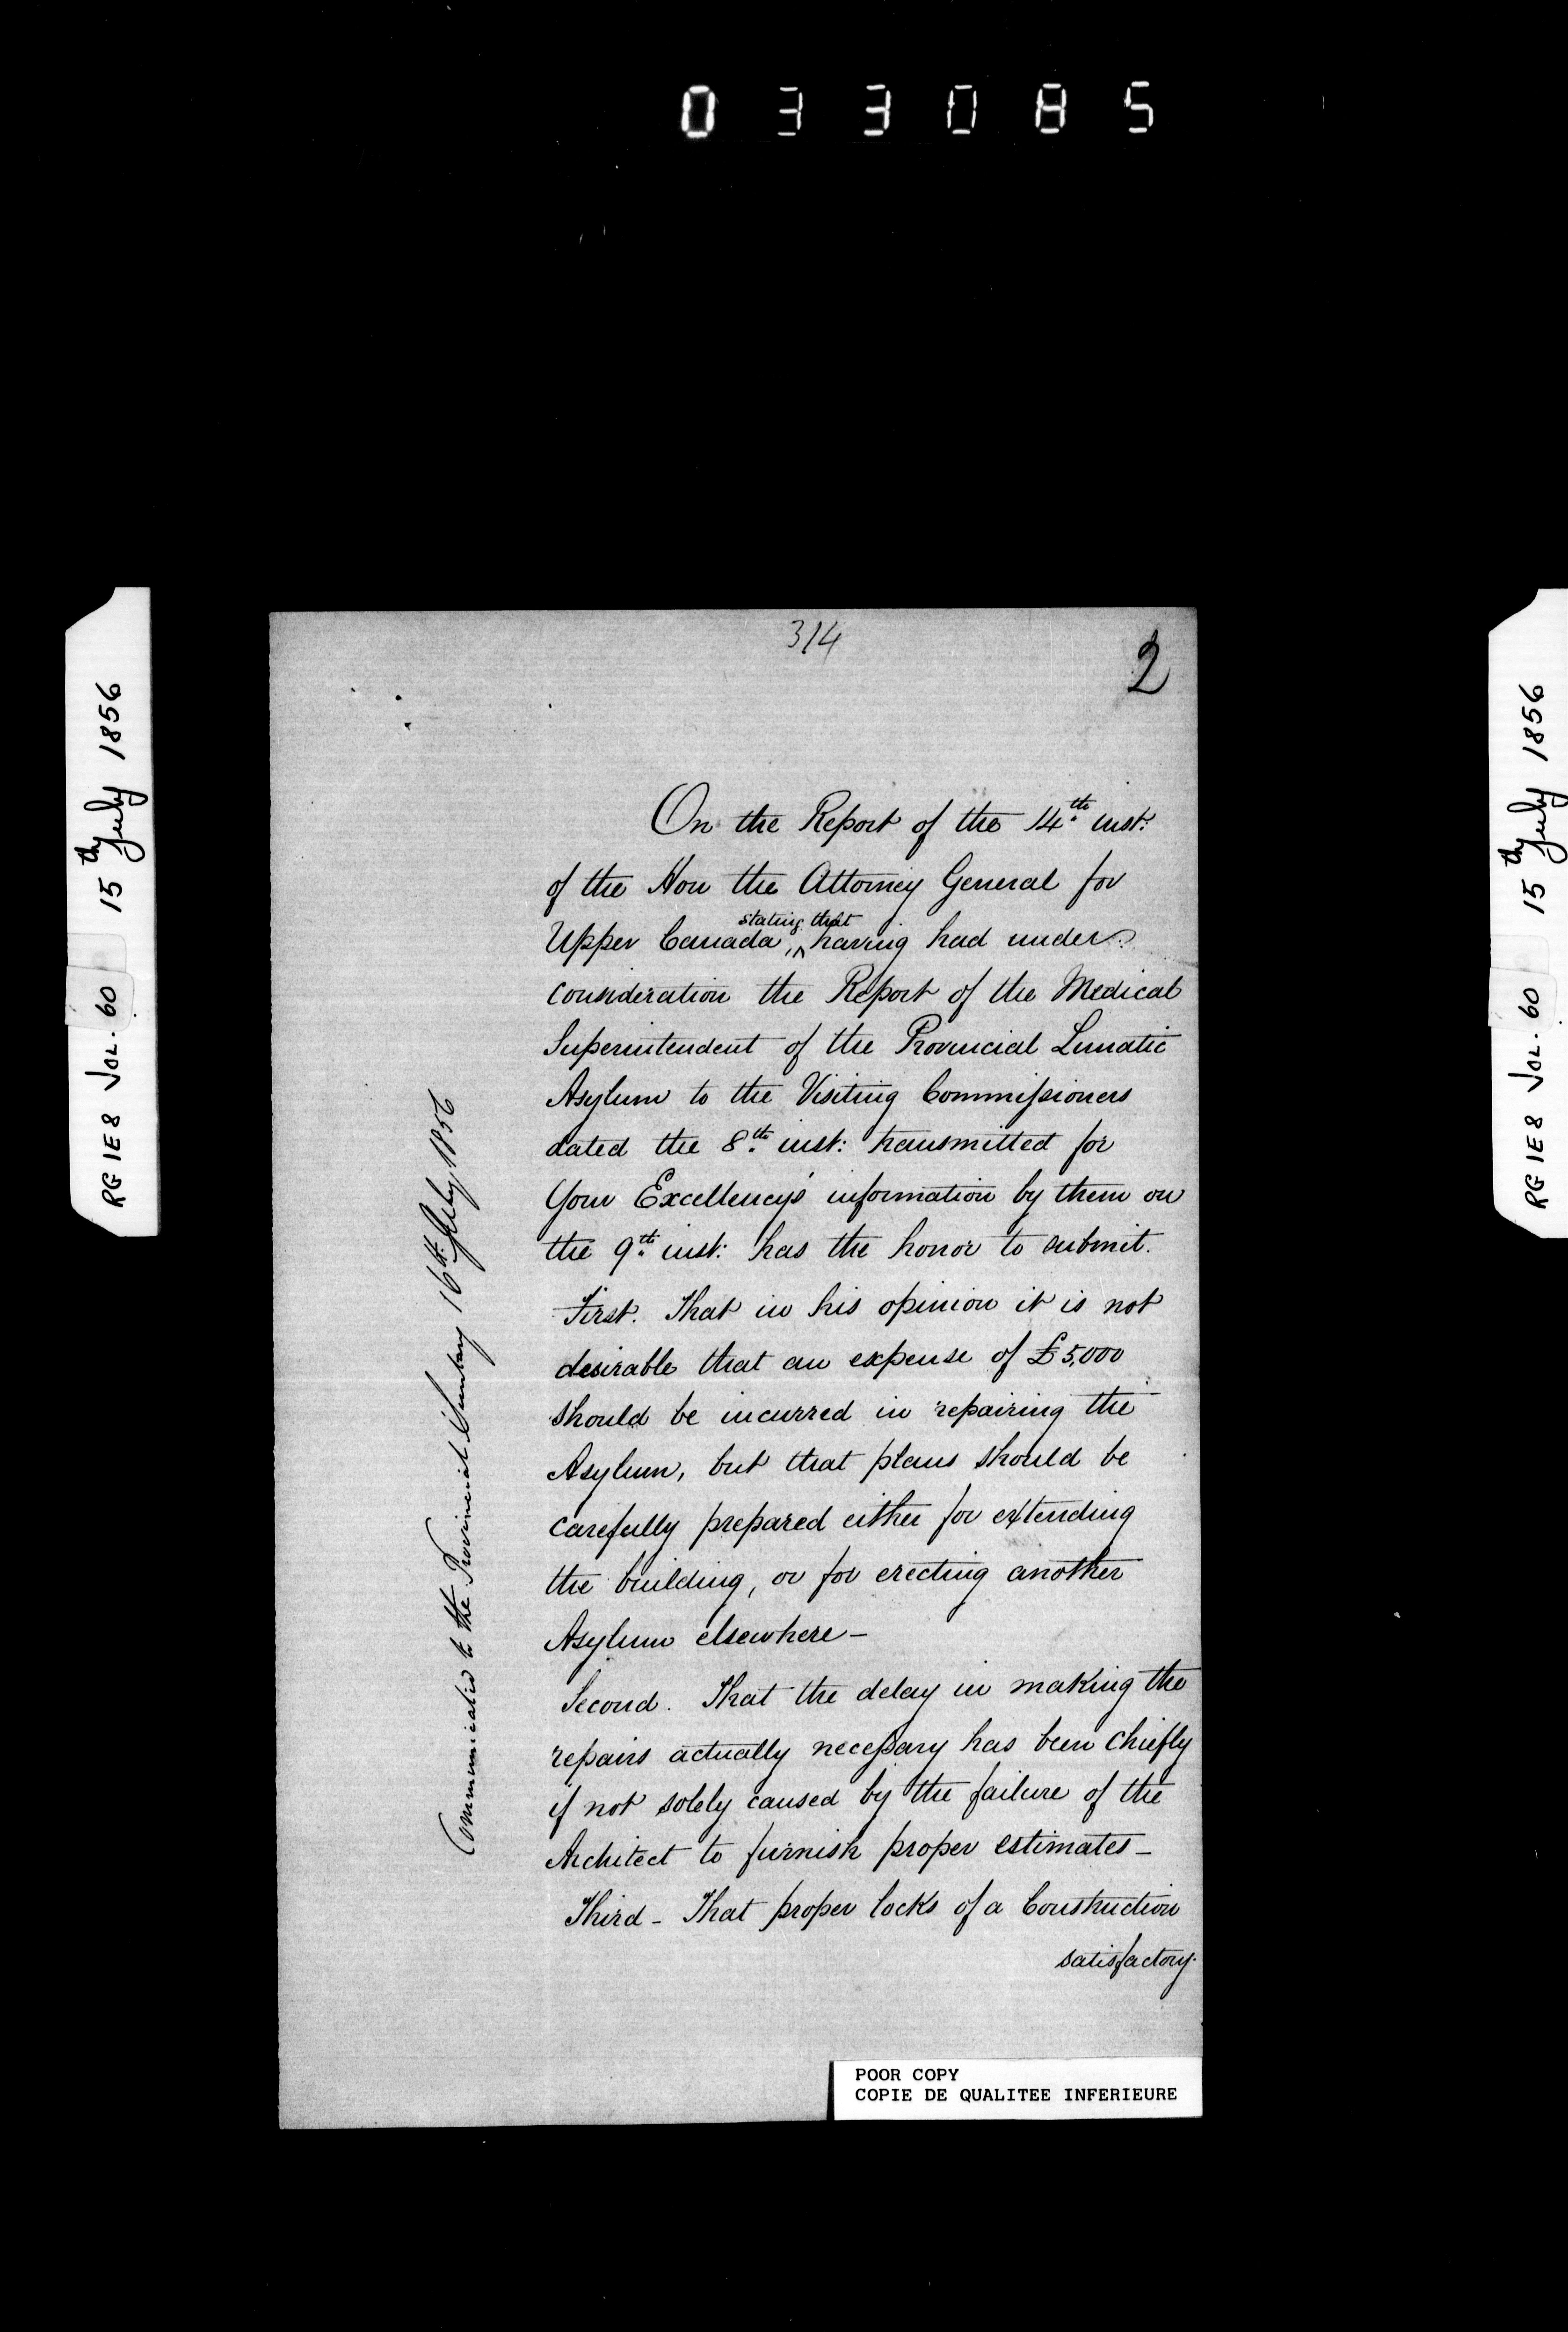 033085
314
2
On the Report of the 14th inst:
of the Hon the Attorney General for
stating that
Upper Canada, ^ having had under
consideration the Report of the Medical
Superintendent of the Provincial Lunatic
Asylum to the Visiting Commissioners
dated the 8th inst: transmitted for
Your Excellency's information by them on
the 9th inst: has the honor to submit.
First. That in his opinion it is not
desirable that an expense of £5,000
should be incurred in repairing the
Asylum, but that plans should be
carefully prepared either for extending
the building, or for erecting another
Asylum elsewhere –
Second. That the delay in making the
repairs actually necessary has been chiefly
if not solely caused by the failure of the
Architect to furnish proper estimates –
Third – That proper locks of a Construction
satisfactory
Communicated to the Provincial Secretary 16th July 1856
POOR COPY
COPIE DE QUALITEE INFERIEURE
RG 1E8 VOL. 60 15th July 1856
RG 1E8 VOL. 60 15th July 1856